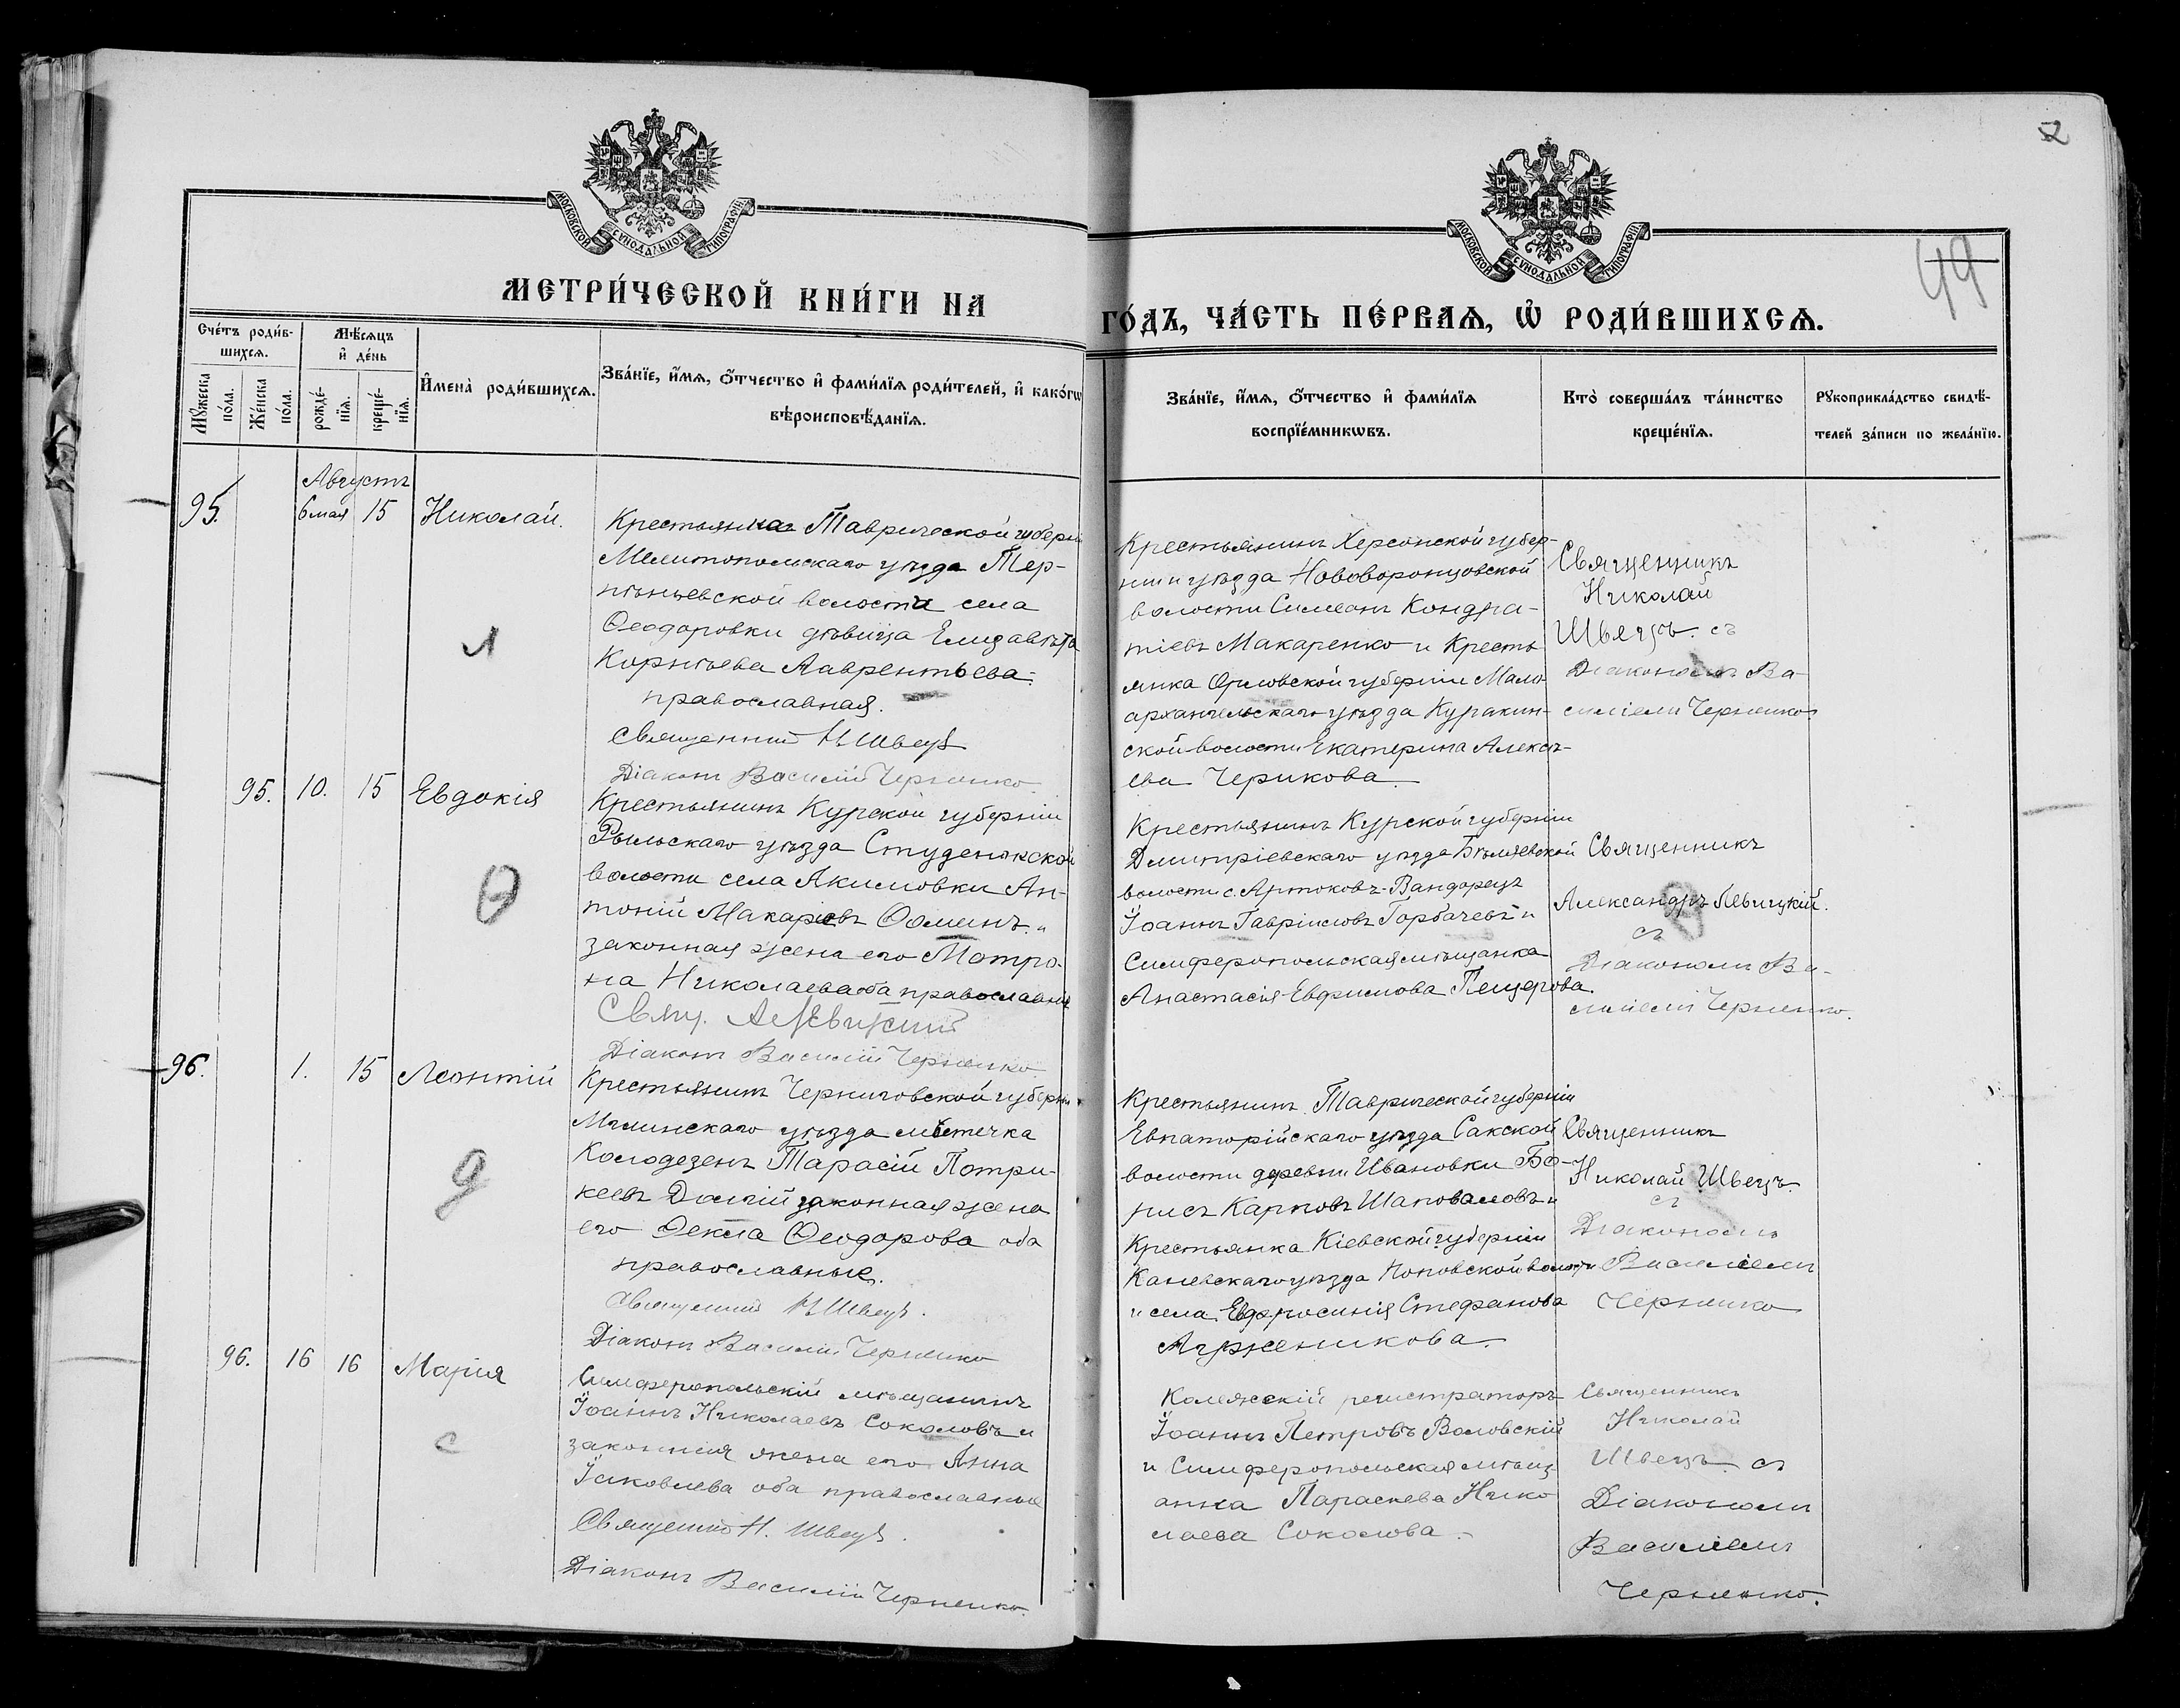 2
49
МОСКОВСКОЙ СѴНОДАЛЬНОЙ ТИПОГРАФІИ
МОСКОВСКОЙ СѴНОДАЛЬНОЙ ТИПОГРАФІИ
МЕТРИ́ЧЕСКОЙ КНИ́ГИ НА
ГО́ДЪ, ЧА́СТЬ ПЕ́РВАѦ, Ѡ҆ РОДИ́ВШИХСѦ.
Сче́тъ роди́в-
шихсѧ.
Мꙋ́жеска по́ла.
Же́нска по́ла.
Мѣ́сѧцъ
и҆ де́нь
рожде́-
нїѧ.
креще́-
нїѧ.
И҆мена̀ роди́вшихсѧ.
Зва́нїе, и҆́мѧ, ѻ҆́тчество и҆ фами́лїѧ роди́телей, и҆ како́гѡ
вѣроисповѣ́данїѧ.
Зва́нїе, и҆́мѧ, ѻ҆́тчество и҆ фами́лїѧ
воспрїе́мникѡвъ.
Кто̀ соверша́лъ та́инство
креще́нїѧ.
Рꙋкоприкла́дство свидѣ́-
телей за́писи по жела́нїю.
Августъ
95. 6 мая 15 Николай.
Крестьянка Таврической губерн
Мелитопольскаго уѣзда Тер-
пѣньевской волости села
Ѳеодоровки дѣвица Елизавѣта
Корнѣева Лаврентьева
православная.
Священник Н Швецъ
Діаконъ Василій Черненко
Л
Крестьянинъ Херсонской губер-
ніи и уѣзда Нововоронцовской
волости Симеонъ Кондра-
тіевъ Макаренко и Кресть
янка Орловской губерніи Мало-
архангельскаго уѣзда Куракин-
ской волости Екатерина Алексѣ-
ева Черикова
Священникъ
Николай
Швецъ съ
Діакономъ Ва-
силіемъ Черненко
95. 10. 15 Евдокія
Крестьянинъ Курской губерніи
Рыльскаго уѣзда Студенокской
волости села Акимовки Ан-
тоній Макаріевъ Ѳоминъ и
законная жена его Матро-
на Николаева оба православные
Свящ. А Левицкий
Діаконъ Василій Черненко
Ѳ
Крестьянинъ Курской губерніи
Дмитріевскаго уѣзда Бѣляевской
волости с. Артюковъ-Вандарецъ
Іоаннъ Гавріиловъ Горбачевъ и
Симферопольская мѣщанка
Анастасія Евфимова Пещерова.
Священникъ
Александръ Левицкій.
съ
Діакономъ Ва-
силіемъ Черненко.
96. 1. 15 Леонтій
Крестьянинъ Черниговской губерніи
Мглинскаго уѣзда мѣстечка
Колодезенъ Тарасій Патри-
кеевъ Долгій законная жена
его Ѳекла Ѳеодорова оба
православные.
Священник Н Швецъ.
Діаконъ Василій Черненко
Д
Крестьянинъ Таврической губерніи
Евпаторійскаго уѣзда Сакской
волости деревни Ивановки Бо-
рисъ Карповъ Шаповаловъ и
Крестьянка Кіевской губерніи
Каневскаго уѣзда Поповской волости
и села Евфросинія Стефанова
Священникъ
Николай Швецъ.
съ
Діакономъ
Василіемъ
Черненко
96. 16 16 Марія
Симферопольскій мѣщанинъ
Іоаннъ Николаевъ Соколовъ и
законная жена его Анна
Іаковлева оба православные
Священник Н. Швецъ.
Діаконъ Василій Черненко.
С
Колежскій регистраторъ
Іоаннъ Петровъ Воловскій
и Симферопольская мѣщ-
анка Параскева Нико
лаева Соколова.
Священникъ
Николай
Швецъ съ
Діакономъ
Василіемъ
Черненко.